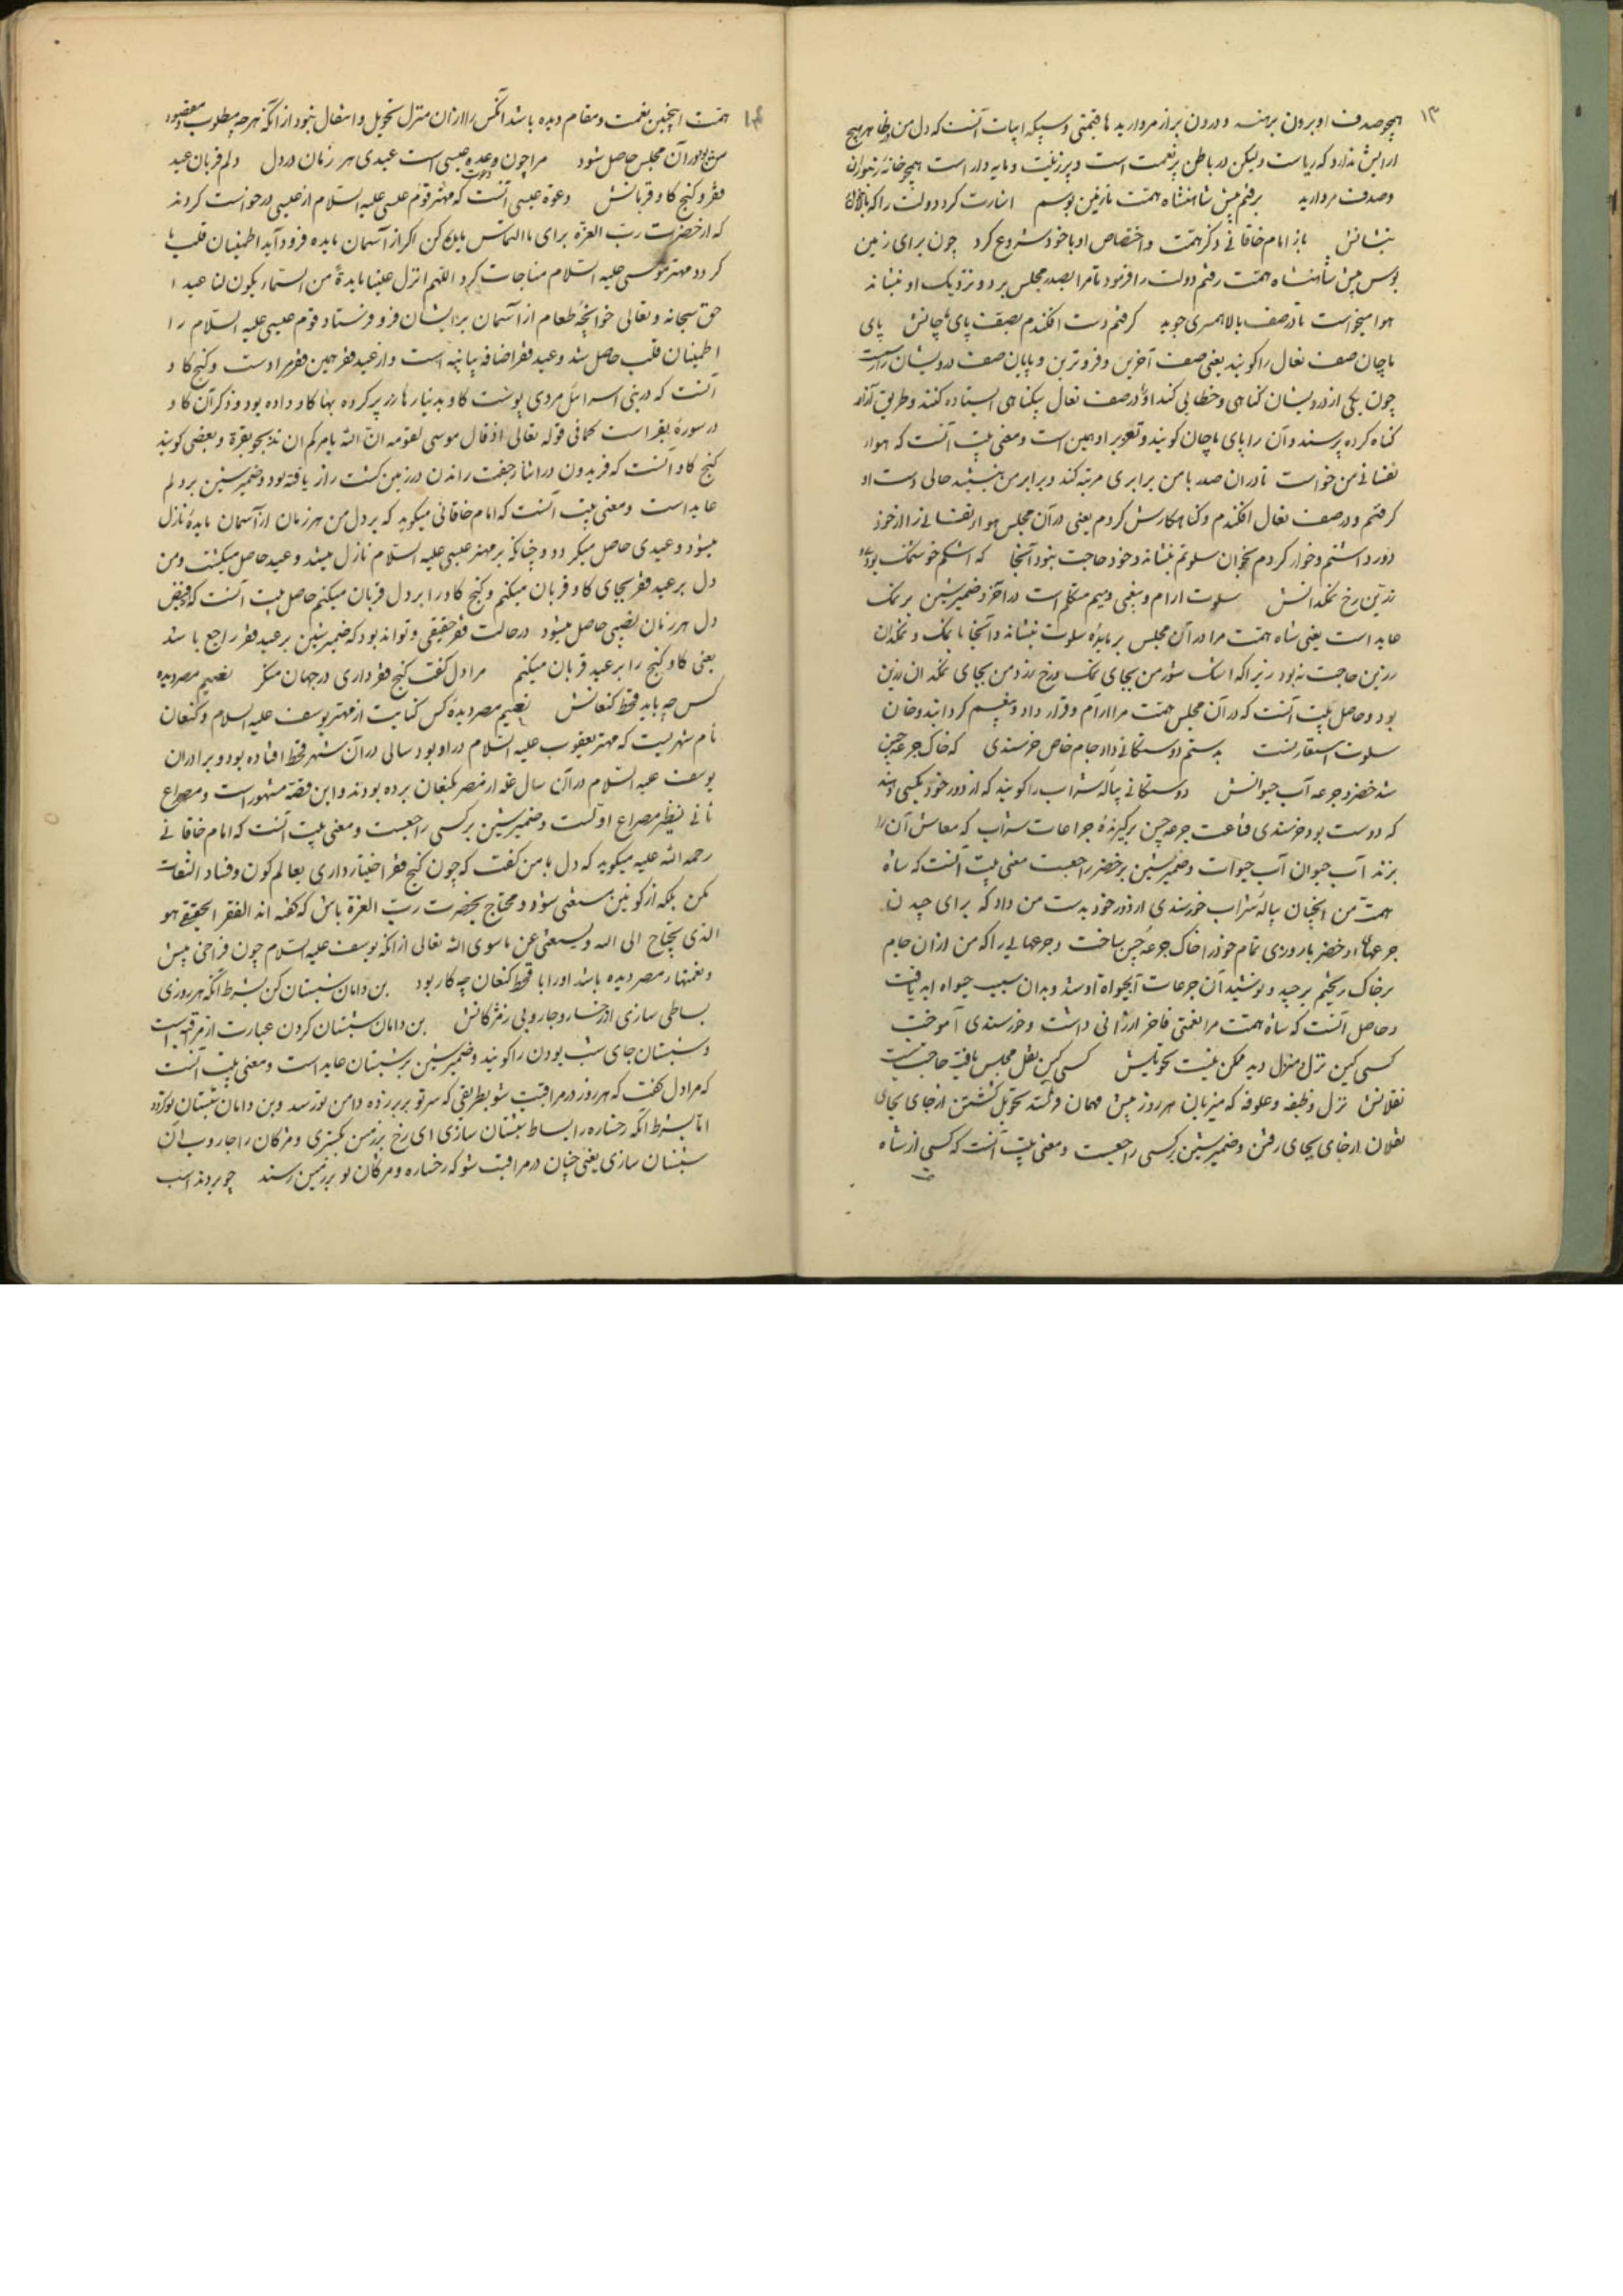 ۱۳
همچو صدف او برون برهنه و درون پر از مروارید ها قیمتی و سپیکه ابیات آنست که دل من بظاهر هیچ
ارایش ندارد که ریاست ولیکن در باطن پر نعمت است و پر زینت و مایه دار است همچو خانه زنبوران
و صدف مروارید برفتم پیش شاهنشاه همت تا زمین بوسم اشارت کرد دولت را که بالا خوان
بنشانش باز امام خاقانی ذکر همت و اختصاص او با خود شروع کرد چون برای زمین
بوس پیش شاهنشاه همت رفتم دولت را فرمود تا مرا بصدر مجلس برد و نزدیک او بنشاند
هوا میخواست تا در صف بالا همسری جوید گرفتم دست افکندم بصف پای ماچانش پای
ماچان صف نعال را گویند یعنی صف آخرین و فروترین و پایان صف درویشان راست
چون یکی از درویشان گناهی و خطایی کند او را در صف نعال بیگناهی ایستاده کنند و طریق آزار
گناه کرده پرسند و آن را پای ماچان گویند و تعزیر او همین است و معنی بیت آنست که هواء
نفسانی من خواست تا در ان صدر با من برابری مرتبه کند و برابر من بنشیند حالی دست او
گرفتم و در صف نعال افکندم و گناهکارش کردم یعنی در آن مجلس هواء نفسانی را از خود
دور داشتم و خوار کردم بخوان سلوتم بنشاند و خود حاجت نبود آنجا که اشکم خوش نمک بود
زرین رخ نمکدانش سلوت ارام و بیغمی و میم متکلم است در آخر و ضمیر شین بر نمک
عاید است یعنی شاه همت مرا در آن مجلس بر مایدهٔ سلوت بنشاند و آنجا با نمک و نمکدان
زرین حاجت نبود زیرا که اشک شور من بجای نمک و رخ زرد من بجای نمکدان زرین
بود و حاصل بیت آنست که در آن مجلس همت مرا آرام و قرار داد و بیغم گردانید و خان
سلوت استعارتست بدستم دوستکانی داد جام خاص خرسندی که خاک جرعه چین
شد خضر و جرعه آب حیوانش دوستکانی پیاله شراب را گویند که از دور خود بکسی دهند
که دوست بود خرسندی قناعت جرعه چین برگیرندهٔ جراعات شراب که معاش آن را
بزند آب حیوان آب حیوات و ضمیر شین بر خضر راجعست معنی بیت آنست که شاه
همت من آنچنان پیاله شراب خورسندی از دور خود بدست من داد که برای چیدن
جرعهاء او خضر بار و زی تمام خود را خاک جرعه چین ساخت و جرعهایی را که من از ان جام
بر خاک ریختم برچید و نوشید آن جرعات آبحیواة او شد و بدان سبب حیواة ابد یافت
و حاصل آنست که شاه همت مرا نعمتی فاخر ارزانی داشت و خورسندی آموخت
کسی کین نزل و منزل دید ممکن نیست تحویلش کسی کین نقل مجلس یافت حاجت نیست
نقلانش نزل وظیفه و علوفه که میزبان هر روز پیش مهمان فرستد تحویل گشتن از جای بجای
نقلان از جای بجای رفتن و ضمیر شین بر کسی راجعست و معنی بیت آنست که کسی از شاه
۱۴
همت اینچنین نعمت و مقام دیده باشد آنکس را ازان منزل تحویل و انتقال نبود از آنکه هر چه مطلوب و مقصود
من بود در آن مجلس حاصل شود مرا چون وعدهٔ عیسی است عیدی هر زمان در دل دلم قربان عید
دعوت
فقر و گنج گاو قربانش دعوة عیسی آنست که مهتر قوم عیسی علیه السلام از عیسی درخواست کردند
که از حضرت رب العزة برای ما التماس مایده کن اگر از آسمان مایده فرود آید اطمینان قلب ما
گردد مهتر موسی علیه السلام مناجات کرد اللهم انزل علینا مایدة من السماء یکون لنا عیدا
حق سبحانه و تعالی خوانچهٔ طعام از آسمان بر ایشان فرو فرستاد قوم عیسی علیه السلام را
اطمینان قلب حاصل شد و عید فقر اضافه بیانیه است و از عید فقر همین فقر مرادست و گنج گاو
آنست که در بنی اسرائل مردی پوست گاو بدینارها زر پر کرده بهاء گاو داده بود و ذکر آن گاو
در سورهٔ بقر است کما فی قوله تعالی اذ قال موسی لقومه ان الله یامرکم ان تذبحو بقرة و بعضی گویند
گنج گاو آنست که فریدون در اثناء جفت راندن در زمین کشت زار یافته بود و ضمیر شین بر دلم
عاید است و معنی بیت آنست که امام خاقانی میگوید که بر دل من هر زمان از آسمان مایدهٔ نازل
میشود و عیدی حاصل میگردد و چنانکه بر مهتر عیسی علیه السلام نازل میشد و عید حاصل میگشت و من
دل بر عید فقر بجای گاو قربان میکنم و گنج گاو را بر دل قربان میکنم حاصل بیت آنست که فیض
دل هر زمان نصیبی حاصل میشود در حالت فقر حقیقی و تواند بود که ضمیر شین بر عید فقر راجع باشد
یعنی گاو گنج را بر عید قربان میکنم مرا دل گفت گنج فقر داری در جهان منگر نعیم مصر دیده
کس چه باید قحط کنعانش نعیم مصر دیده کس کنایت از مهتر یوسف علیه السلام و کنعان
نام شهریست که مهتر یعقوب علیه السلام در او بود سالی در آن شهر قحط افتاده بود و برادران
یوسف علیه السلام در آن سال غله از مصر بکنعان برده بودند و این قصه مشهور است و مصراع
ثانی نظیر مصراع اولست و ضمیر شین بر کسی راجعست و معنی بیت آنست که امام خاقانی
رحمه الله علیه میگوید که دل با من گفت که چون گنج فقر اختیار داری بعالم کون و فساد التفات
مکن بلکه از کونین مستغنی شو و محتاج بحضرت رب العزة باش که گفته اند الفقر الحقیقی هو
الذی یحتاج الی الله و یستغنی عن ما سوی الله تعالی از آنکه یوسف علیه السلام چون فراخی عیش
و نعمتهاء مصر دیده باشد او را با قحط کنعان چه کار بود بن دامان شبستان کن بشرط آنکه هر روزی
بساطی سازی از رخسار و جاروبی ز مژگانش بن دامان شبستان کردن عبارت از مراقبه است
و شبستان جای شب بودن را گویند و ضمیر شین بر شبستان عاید است و معنی بیت آنست
که مرا دل گفت که هر روز در مراقبت شو بطریقی که سر تو بر بر زده دامن تو رسد و بن دامان شبستان تو گردد
اما بشرط آنکه رخساره را بساط شبستان سازی ای رخ بر زمین بگستری و مژگان را جاروب آن
شبستان سازی یعنی چنان در مراقبت شو که رخساره و مژگان تو بر زمین رسند چو بردند اسب